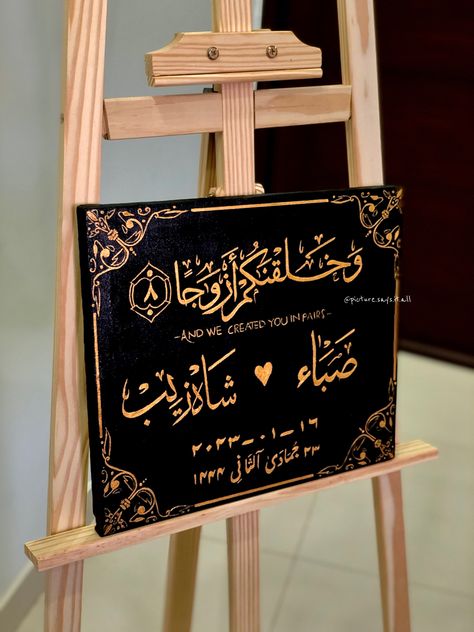 وَخَلَقْنَكُمْ أَزْوَجًا ٨
@picture.says.it.all
-AND WE CREATED YOU IN PAIRS-
صَبَاء ♥ شاه زیب
٢٠٢٣-٠١-١٦
٢٣ جُمَادَى ٱلثَّانِي ١٤٤٤